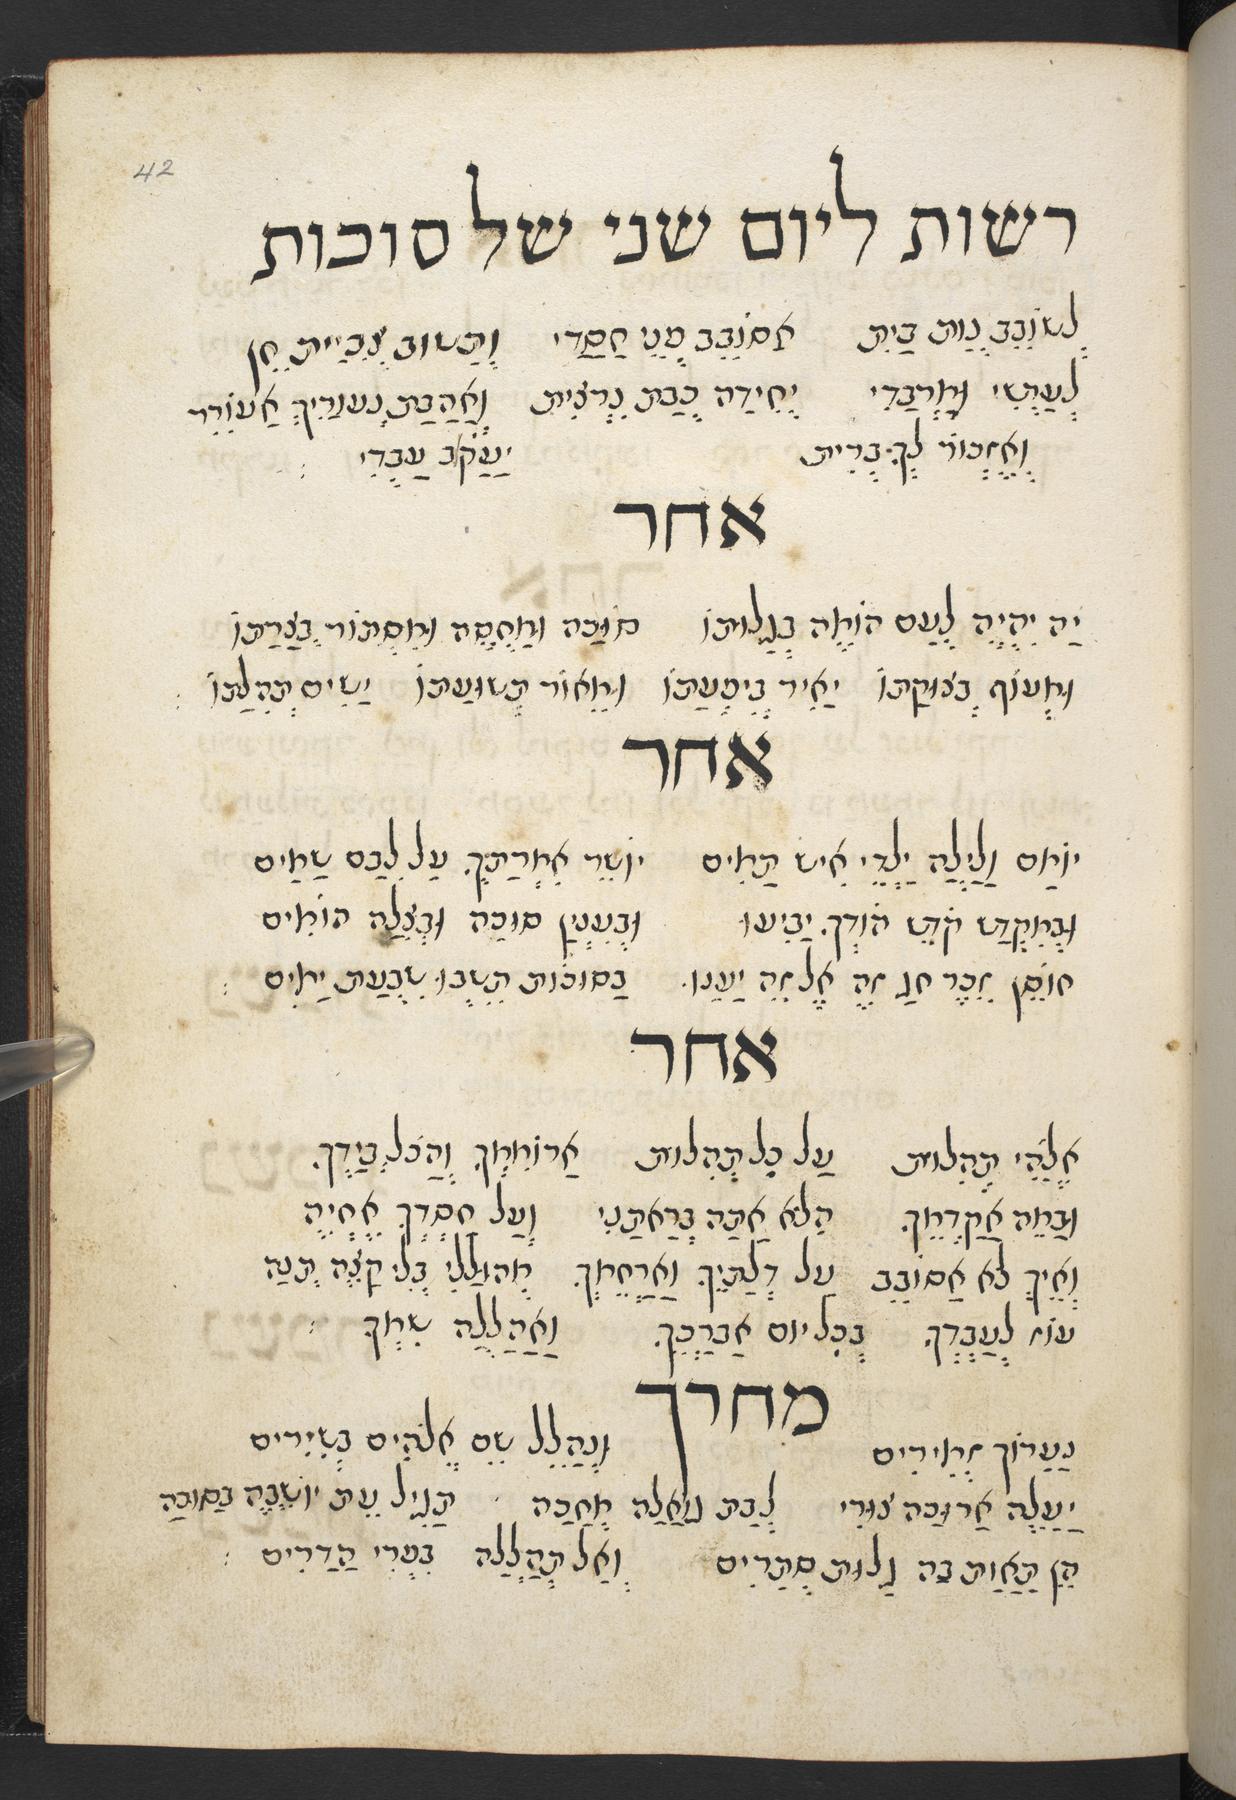 42
רשות ליום שני של סוכות
לְשׁוֹבֵב נְוַת בַּיִת אֲסוֹבֵב מְנֵי חֲסָדַי וְתָשׁוּב צְבִיַּית חֵן
יְחִידָה כְּבַת נִרְצֵית וְאַהֲבַת נְעוּרַיִךְ אֲעוֹרֵר
וְאֶזְכּוֹר לָךְ בְּרִית יַעֲקֹב עַבְדִּי :
אחר
יָהּ יִהְיֶה לְעַם הוֹמֶה בְּגָלוּתוֹ סוּכָּה וּמַחְסֶה וּמִסְתּוֹר בְּצָרָתוֹ
בְּצוּקָתוֹ יָאִיר וּמְאוֹר תְּשׁוּעָתוֹ יָשִׂים תְּהִלָּתוֹ :
אחר
יוֹמָם וָלַיְלָה יַלְדֵי אִישׁ תָּמִים יוֹשֶׁר אִמְרָתְךָ עַל לִבָּם שָׂמִים
וּבְמִקְדַּשׁ קֹדֶשׁ הוֹדְךָ יַבִּיעוּ וּבְעִנְיַן סוּכָּה וּבְצִלָּהּ הוֹמִים
זֶה אֶל זֶה יַעֲנוּ בַּסּוּכּוֹת תֵּשְׁבוּ שִׁבְעַת יָמִים :
אחר
אֱלֹהֵי תְהִלּוֹת עַל כָּל תְּהִלּוֹת אֲרוֹמִמְךָ וְהַכֹּל בְּיָדְךָ
וּבַמֶּה אֲקַדְּמֶךָ הֲלֹא אַתָּה בְרָאתַנִי וְעַל חַסְדְּךָ אֶחְיֶה
וְאֵיךְ לֹא אֲסוֹבֵב עַל דְּלָתֶיךָ וַאֲרַמְּמֶךָ מְהוּלָּל בְּלִי קָצֶה תְּנָה
עוֹז לְעַבְדֶּךָ בְּכָל יוֹם אֲבָרְכֶךָּ וַאֲהַלְלָה שִׁמְךָ :
מחרך
נַעֲרוֹךְ זְמִירִים וּנְהַלֵּל שֵׁם אֱלֹהִים בְּשִׁירִים
יַעֲלֶה אֲרוּכָה צוּרִי לְבַת גּוֹאֲלָהּ מְחַכָּה עֵת יוֹשֶׁבֶת בַּסּוּכָּה
הֵן תַּאֲוַת בָּהּ גָּלוּת סְתָרִים וְאָז תְּהַלְלָה בִּפְרִי הֲדָרִים :